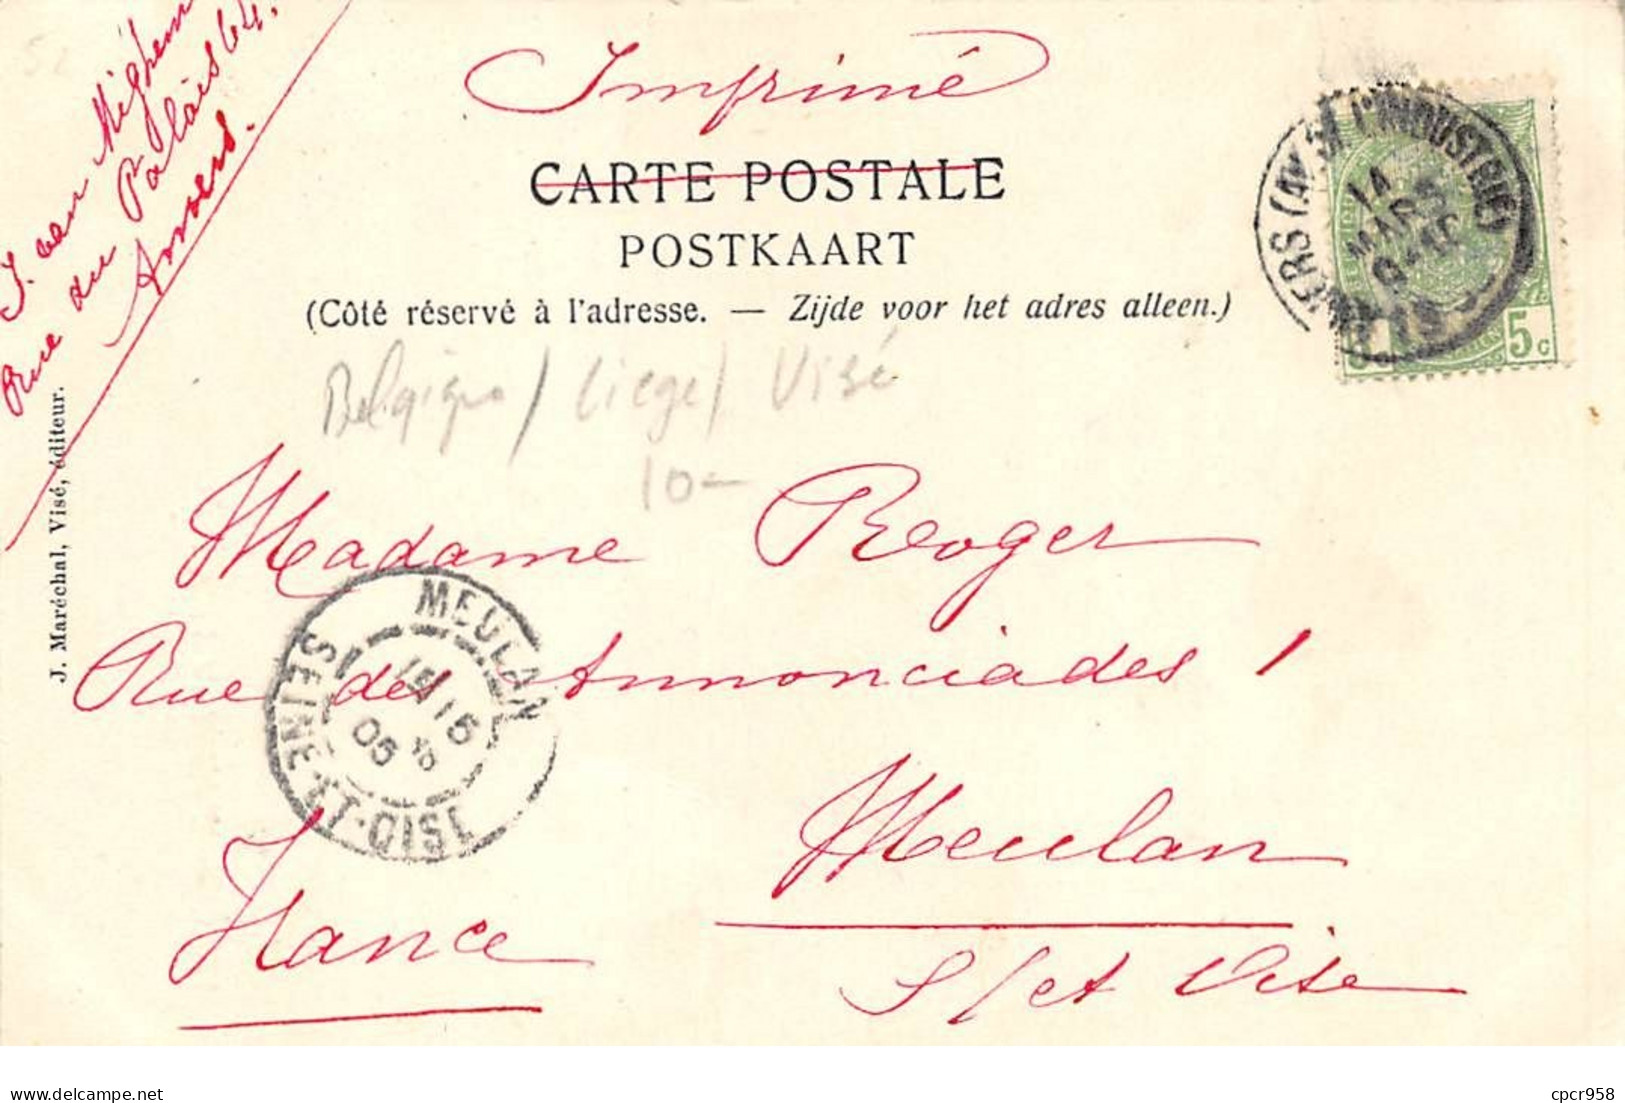 J. van Mighem
Rue du Palais 64.
Anvers.
Imprimé
CARTE POSTALE
POSTKAART
(Côté réservé à l'adresse. — Zijde voor het adres alleen.)
L'INDUSTRIE)
14
MARS
5 C
Belgique / Liege / Visé
10-
J. Maréchal, Visé, éditeur.
Madame Roger
Rue des Annonciades 1
MEULAN
15
05
SEINE-ET-OISE
Meulan
France
S/et Oise
www.delcampe.net
cpcr958